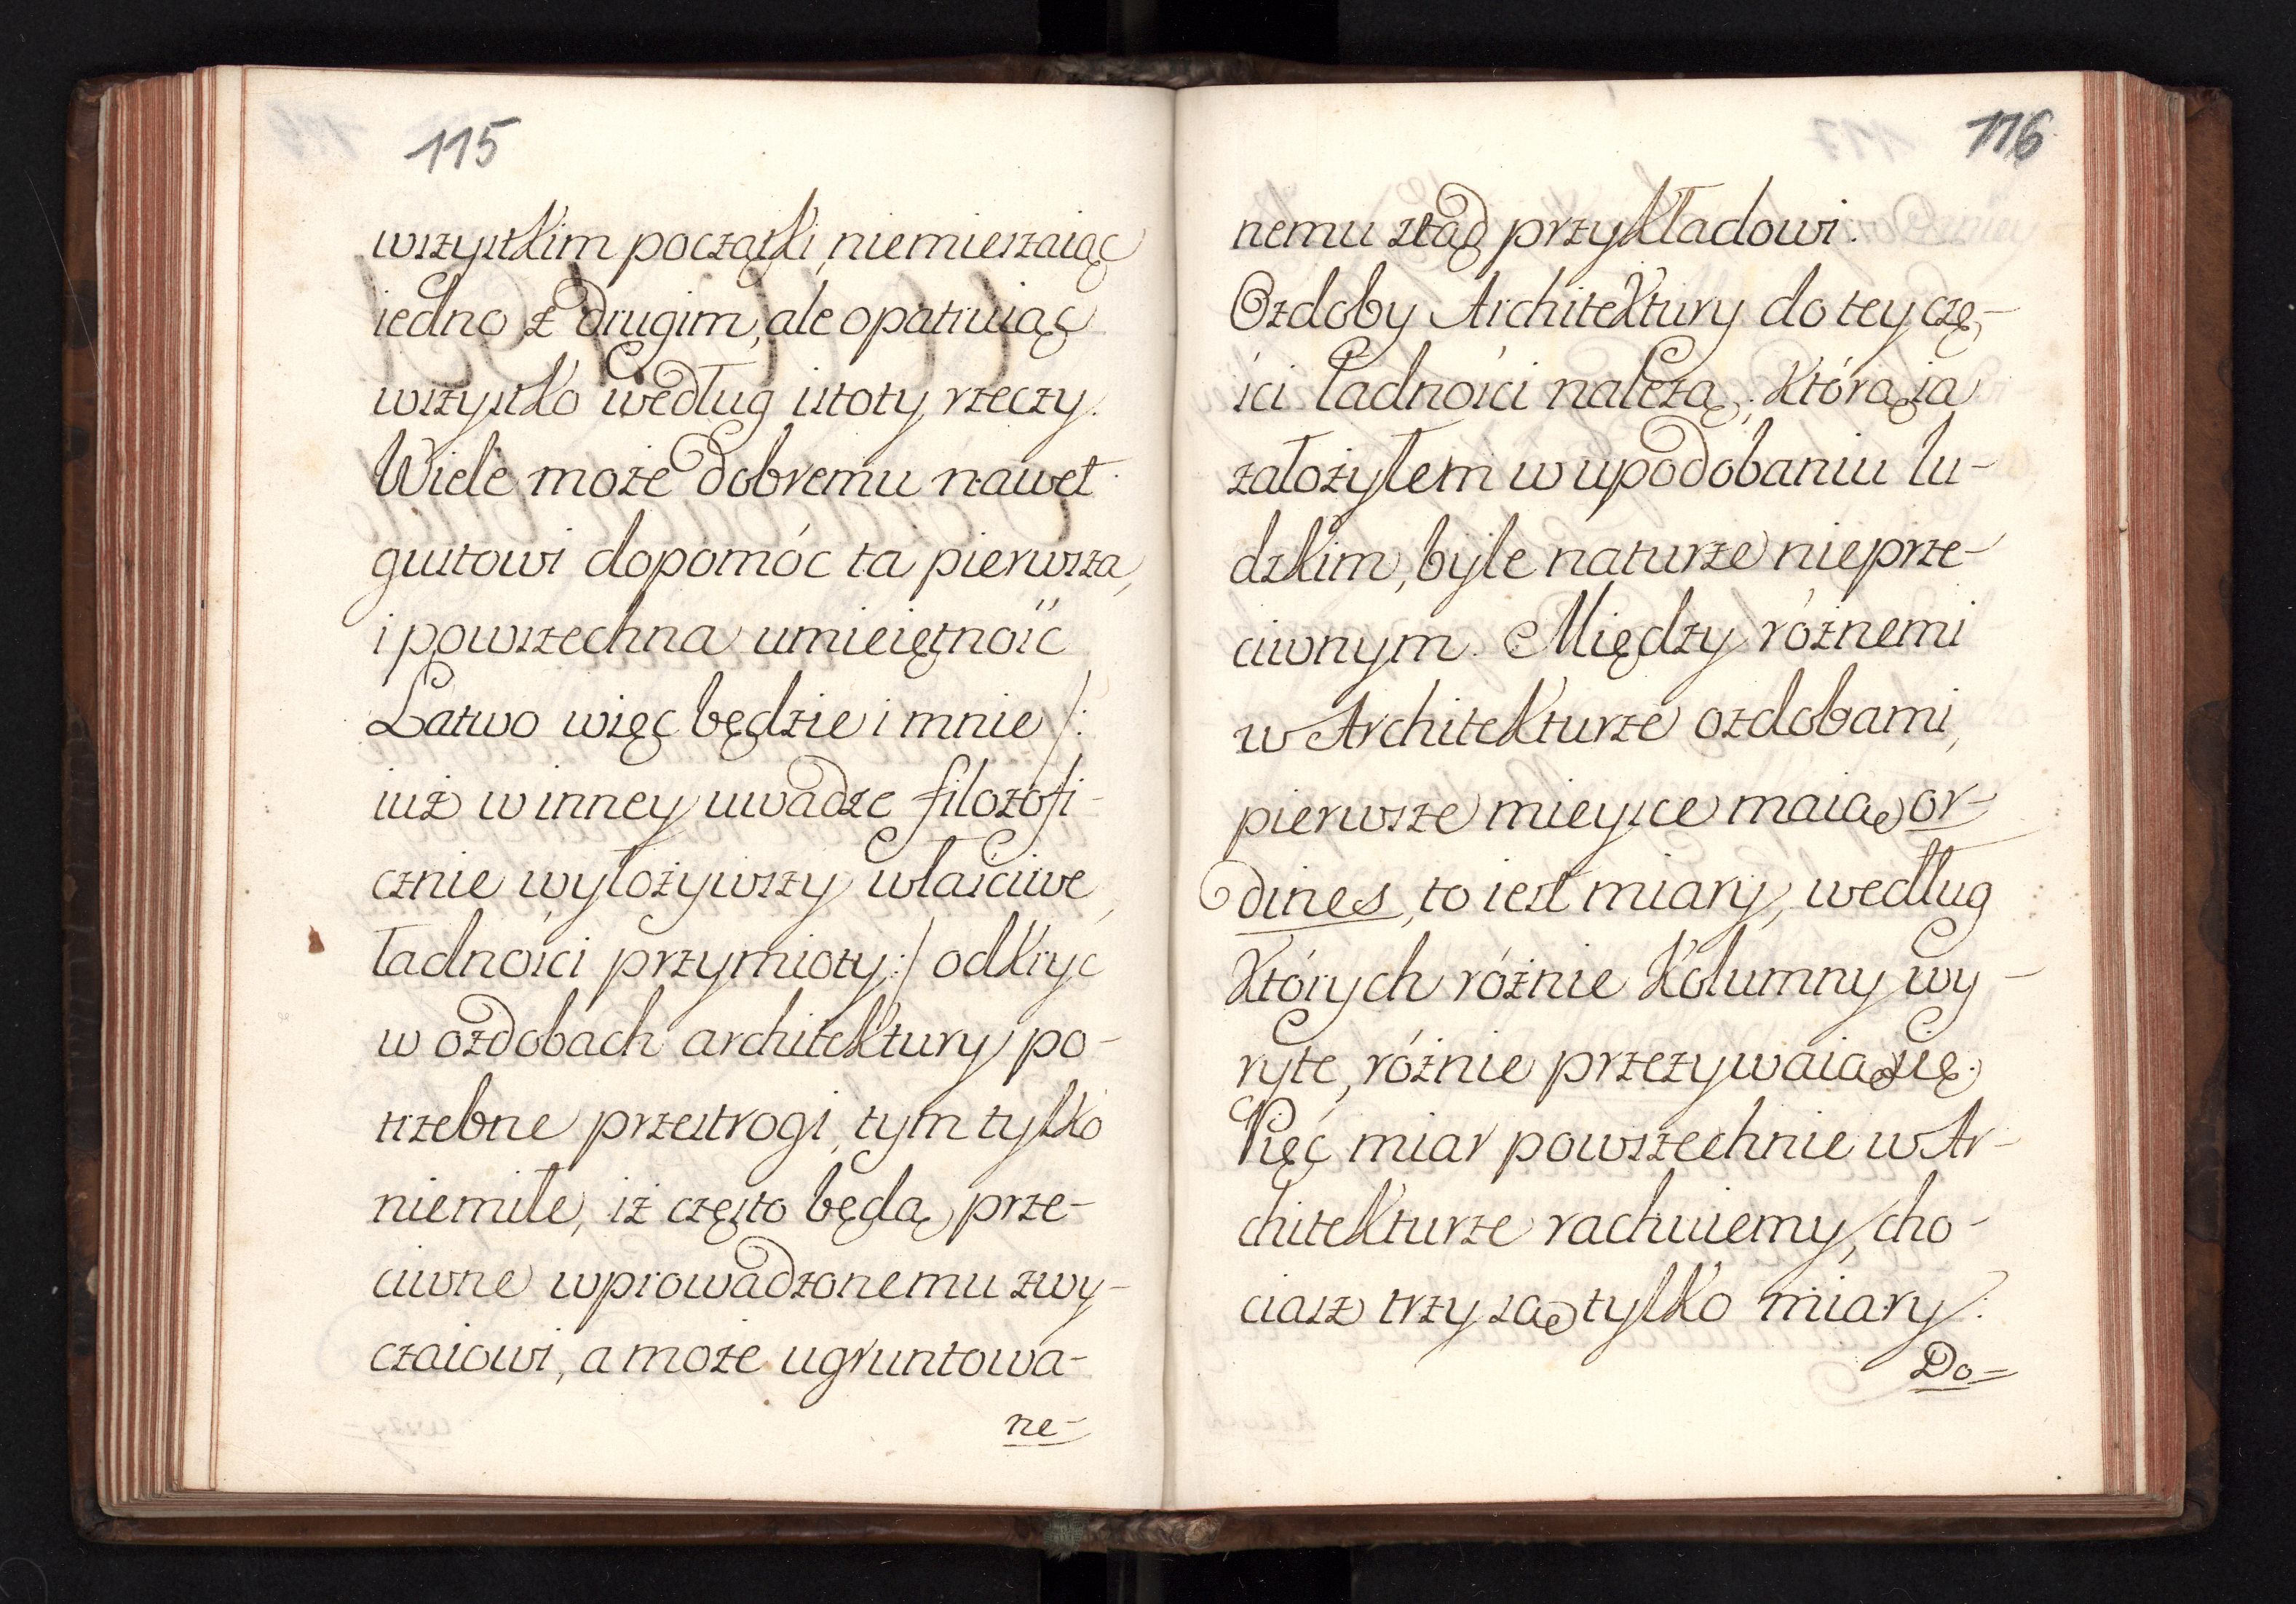 115
wszystkim początki, niemieszaiąc
iedno z drugim, ale opatruiąc
wszystko według istoty rzeczy.
Wiele może dobremu nawet
gustowi dopomóc ta pierwsza,
i powszechna umieiętność
Łatwo więc będzie i mnie /:
iuż w inney uwadze filozofi-
cznie wyłożywszy właściwe
ładności przymioty :/ odkryć
w ozdobach architektury po-
trzebne przestrogi, tym tylko
niemiłe, iż często będą prze-
ciwne wprowadzonemu zwy-
czaiowi, a może ugruntowa-
ne-
116
nemu ztąd przykładowi.
Ozdoby Architektury do tey czę-
ści ładności należą, którą ia
założyłem w upodobaniu lu-
dzkim, byle naturze nieprze-
ciwnym. Między różnemi
w Architekturze ozdobami,
pierwsze mieysce maią or-
dines, to iest miary, według
których różnie kolumny wy-
ryte, różnie przezywaią się.
Pięć miar powszechnie w Ar-
chitekturze rachuiemy, cho-
ciasz trzy są tylko miary.
Do=